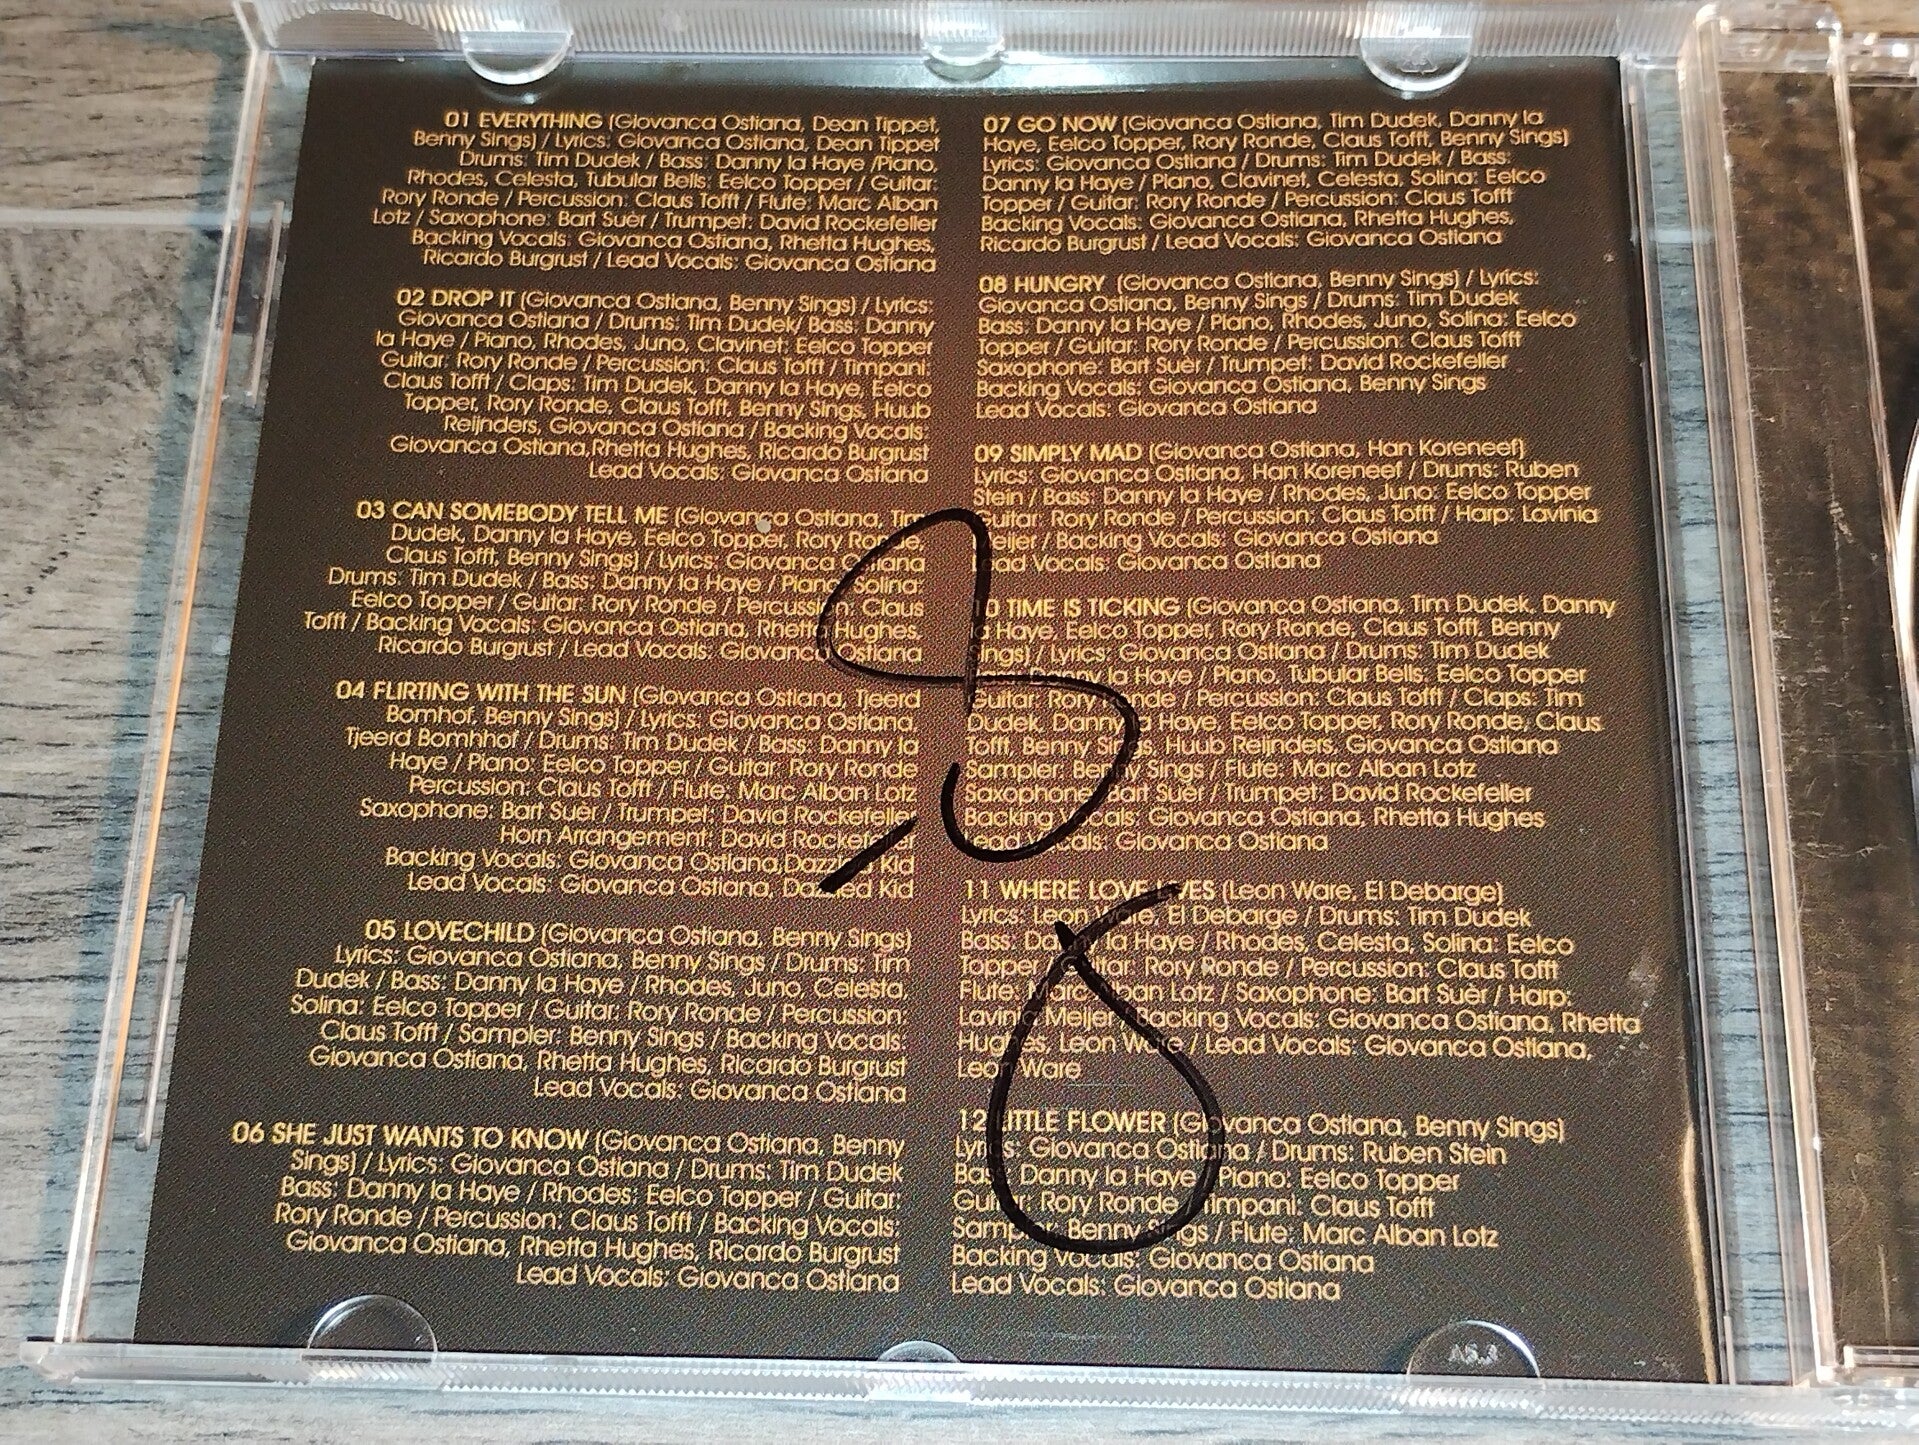 01 EVERYTHING (Giovanca Ostiana, Dean Tippet,
Benny Sings) / Lyrics: Giovanca Ostiana, Dean Tippet
Drums: Tim Dudek / Bass: Danny la Haye /Piano,
Rhodes, Celesta, Tubular Bells: Eelco Topper / Guitar:
Rory Ronde / Percussion: Claus Tofft / Flute: Marc Alban
Lotz / Saxophone: Bart Suèr / Trumpet: David Rockefeller
Backing Vocals: Giovanca Ostiana, Rhetta Hughes,
Ricardo Burgrust / Lead Vocals: Giovanca Ostiana
02 DROP IT (Giovanca Ostiana, Benny Sings) / Lyrics:
Giovanca Ostiana / Drums: Tim Dudek/ Bass: Danny
la Haye / Piano, Rhodes, Juno, Clavinet: Eelco Topper
Guitar: Rory Ronde / Percussion: Claus Tofft / Timpani:
Claus Tofft / Claps: Tim Dudek, Danny la Haye, Eelco
Topper, Rory Ronde, Claus Tofft, Benny Sings, Huub
Reijnders, Giovanca Ostiana / Backing Vocals:
Giovanca Ostiana,Rhetta Hughes, Ricardo Burgrust
Lead Vocals: Giovanca Ostiana
03 CAN SOMEBODY TELL ME (Giovanca Ostiana, Tim
Dudek, Danny la Haye, Eelco Topper, Rory Ronde,
Claus Tofft, Benny Sings) / Lyrics: Giovanca Ostiana
Drums: Tim Dudek / Bass: Danny la Haye / Piano, Solina:
Eelco Topper / Guitar: Rory Ronde / Percussion: Claus
Tofft / Backing Vocals: Giovanca Ostiana, Rhetta Hughes,
Ricardo Burgrust / Lead Vocals: Giovanca Ostiana
04 FLIRTING WITH THE SUN (Giovanca Ostiana, Tjeerd
Bomhof, Benny Sings) / Lyrics: Giovanca Ostiana,
Tjeerd Bomhhof / Drums: Tim Dudek / Bass: Danny la
Haye / Piano: Eelco Topper / Guitar: Rory Ronde
Percussion: Claus Tofft / Flute: Marc Alban Lotz
Saxophone: Bart Suèr / Trumpet: David Rockefeller
Horn Arrangement: David Rockefeller
Backing Vocals: Giovanca Ostiana,Dazzled Kid
Lead Vocals: Giovanca Ostiana, Dazzled Kid
05 LOVECHILD (Giovanca Ostiana, Benny Sings)
Lyrics: Giovanca Ostiana, Benny Sings / Drums: Tim
Dudek / Bass: Danny la Haye / Rhodes, Juno, Celesta,
Solina: Eelco Topper / Guitar: Rory Ronde / Percussion:
Claus Tofft / Sampler: Benny Sings / Backing Vocals:
Giovanca Ostiana, Rhetta Hughes, Ricardo Burgrust
Lead Vocals: Giovanca Ostiana
06 SHE JUST WANTS TO KNOW (Giovanca Ostiana, Benny
Sings) / Lyrics: Giovanca Ostiana / Drums: Tim Dudek
Bass: Danny la Haye / Rhodes: Eelco Topper / Guitar:
Rory Ronde / Percussion: Claus Tofft / Backing Vocals:
Giovanca Ostiana, Rhetta Hughes, Ricardo Burgrust
Lead Vocals: Giovanca Ostiana
07 GO NOW (Giovanca Ostiana, Tim Dudek, Danny la
Haye, Eelco Topper, Rory Ronde, Claus Tofft, Benny Sings)
Lyrics: Giovanca Ostiana / Drums: Tim Dudek / Bass:
Danny la Haye / Piano, Clavinet, Celesta, Solina: Eelco
Topper / Guitar: Rory Ronde / Percussion: Claus Tofft
Backing Vocals: Giovanca Ostiana, Rhetta Hughes,
Ricardo Burgrust / Lead Vocals: Giovanca Ostiana
08 HUNGRY (Giovanca Ostiana, Benny Sings) / Lyrics:
Giovanca Ostiana, Benny Sings / Drums: Tim Dudek
Bass: Danny la Haye / Piano, Rhodes, Juno, Solina: Eelco
Topper / Guitar: Rory Ronde / Percussion: Claus Tofft
Saxophone: Bart Suèr / Trumpet: David Rockefeller
Backing Vocals: Giovanca Ostiana, Benny Sings
Lead Vocals: Giovanca Ostiana
09 SIMPLY MAD (Giovanca Ostiana, Han Koreneef)
Lyrics: Giovanca Ostiana, Han Koreneef / Drums: Ruben
Stein / Bass: Danny la Haye / Rhodes, Juno: Eelco Topper
Guitar: Rory Ronde / Percussion: Claus Tofft / Harp: Lavinia
Meijer / Backing Vocals: Giovanca Ostiana
Lead Vocals: Giovanca Ostiana
10 TIME IS TICKING (Giovanca Ostiana, Tim Dudek, Danny
la Haye, Eelco Topper, Rory Ronde, Claus Tofft, Benny
Sings) / Lyrics: Giovanca Ostiana / Drums: Tim Dudek
Bass: Danny la Haye / Piano, Tubular Bells: Eelco Topper
Guitar: Rory Ronde / Percussion: Claus Tofft / Claps: Tim
Dudek, Danny la Haye, Eelco Topper, Rory Ronde, Claus
Tofft, Benny Sings, Huub Reijnders, Giovanca Ostiana
Sampler: Benny Sings / Flute: Marc Alban Lotz
Saxophone: Bart Suèr / Trumpet: David Rockefeller
Backing Vocals: Giovanca Ostiana, Rhetta Hughes
Lead Vocals: Giovanca Ostiana
11 WHERE LOVE LIVES (Leon Ware, El Debarge)
Lyrics: Leon Ware, El Debarge / Drums: Tim Dudek
Bass: Danny la Haye / Rhodes, Celesta, Solina: Eelco
Topper / Guitar: Rory Ronde / Percussion: Claus Tofft
Flute: Marc Alban Lotz / Saxophone: Bart Suèr / Harp:
Lavinia Meijer / Backing Vocals: Giovanca Ostiana, Rhetta
Hughes, Leon Ware / Lead Vocals: Giovanca Ostiana,
Leon Ware
12 LITTLE FLOWER (Giovanca Ostiana, Benny Sings)
Lyrics: Giovanca Ostiana / Drums: Ruben Stein
Bass: Danny la Haye / Piano: Eelco Topper
Guitar: Rory Ronde / Timpani: Claus Tofft
Sampler: Benny Sings / Flute: Marc Alban Lotz
Backing Vocals: Giovanca Ostiana
Lead Vocals: Giovanca Ostiana